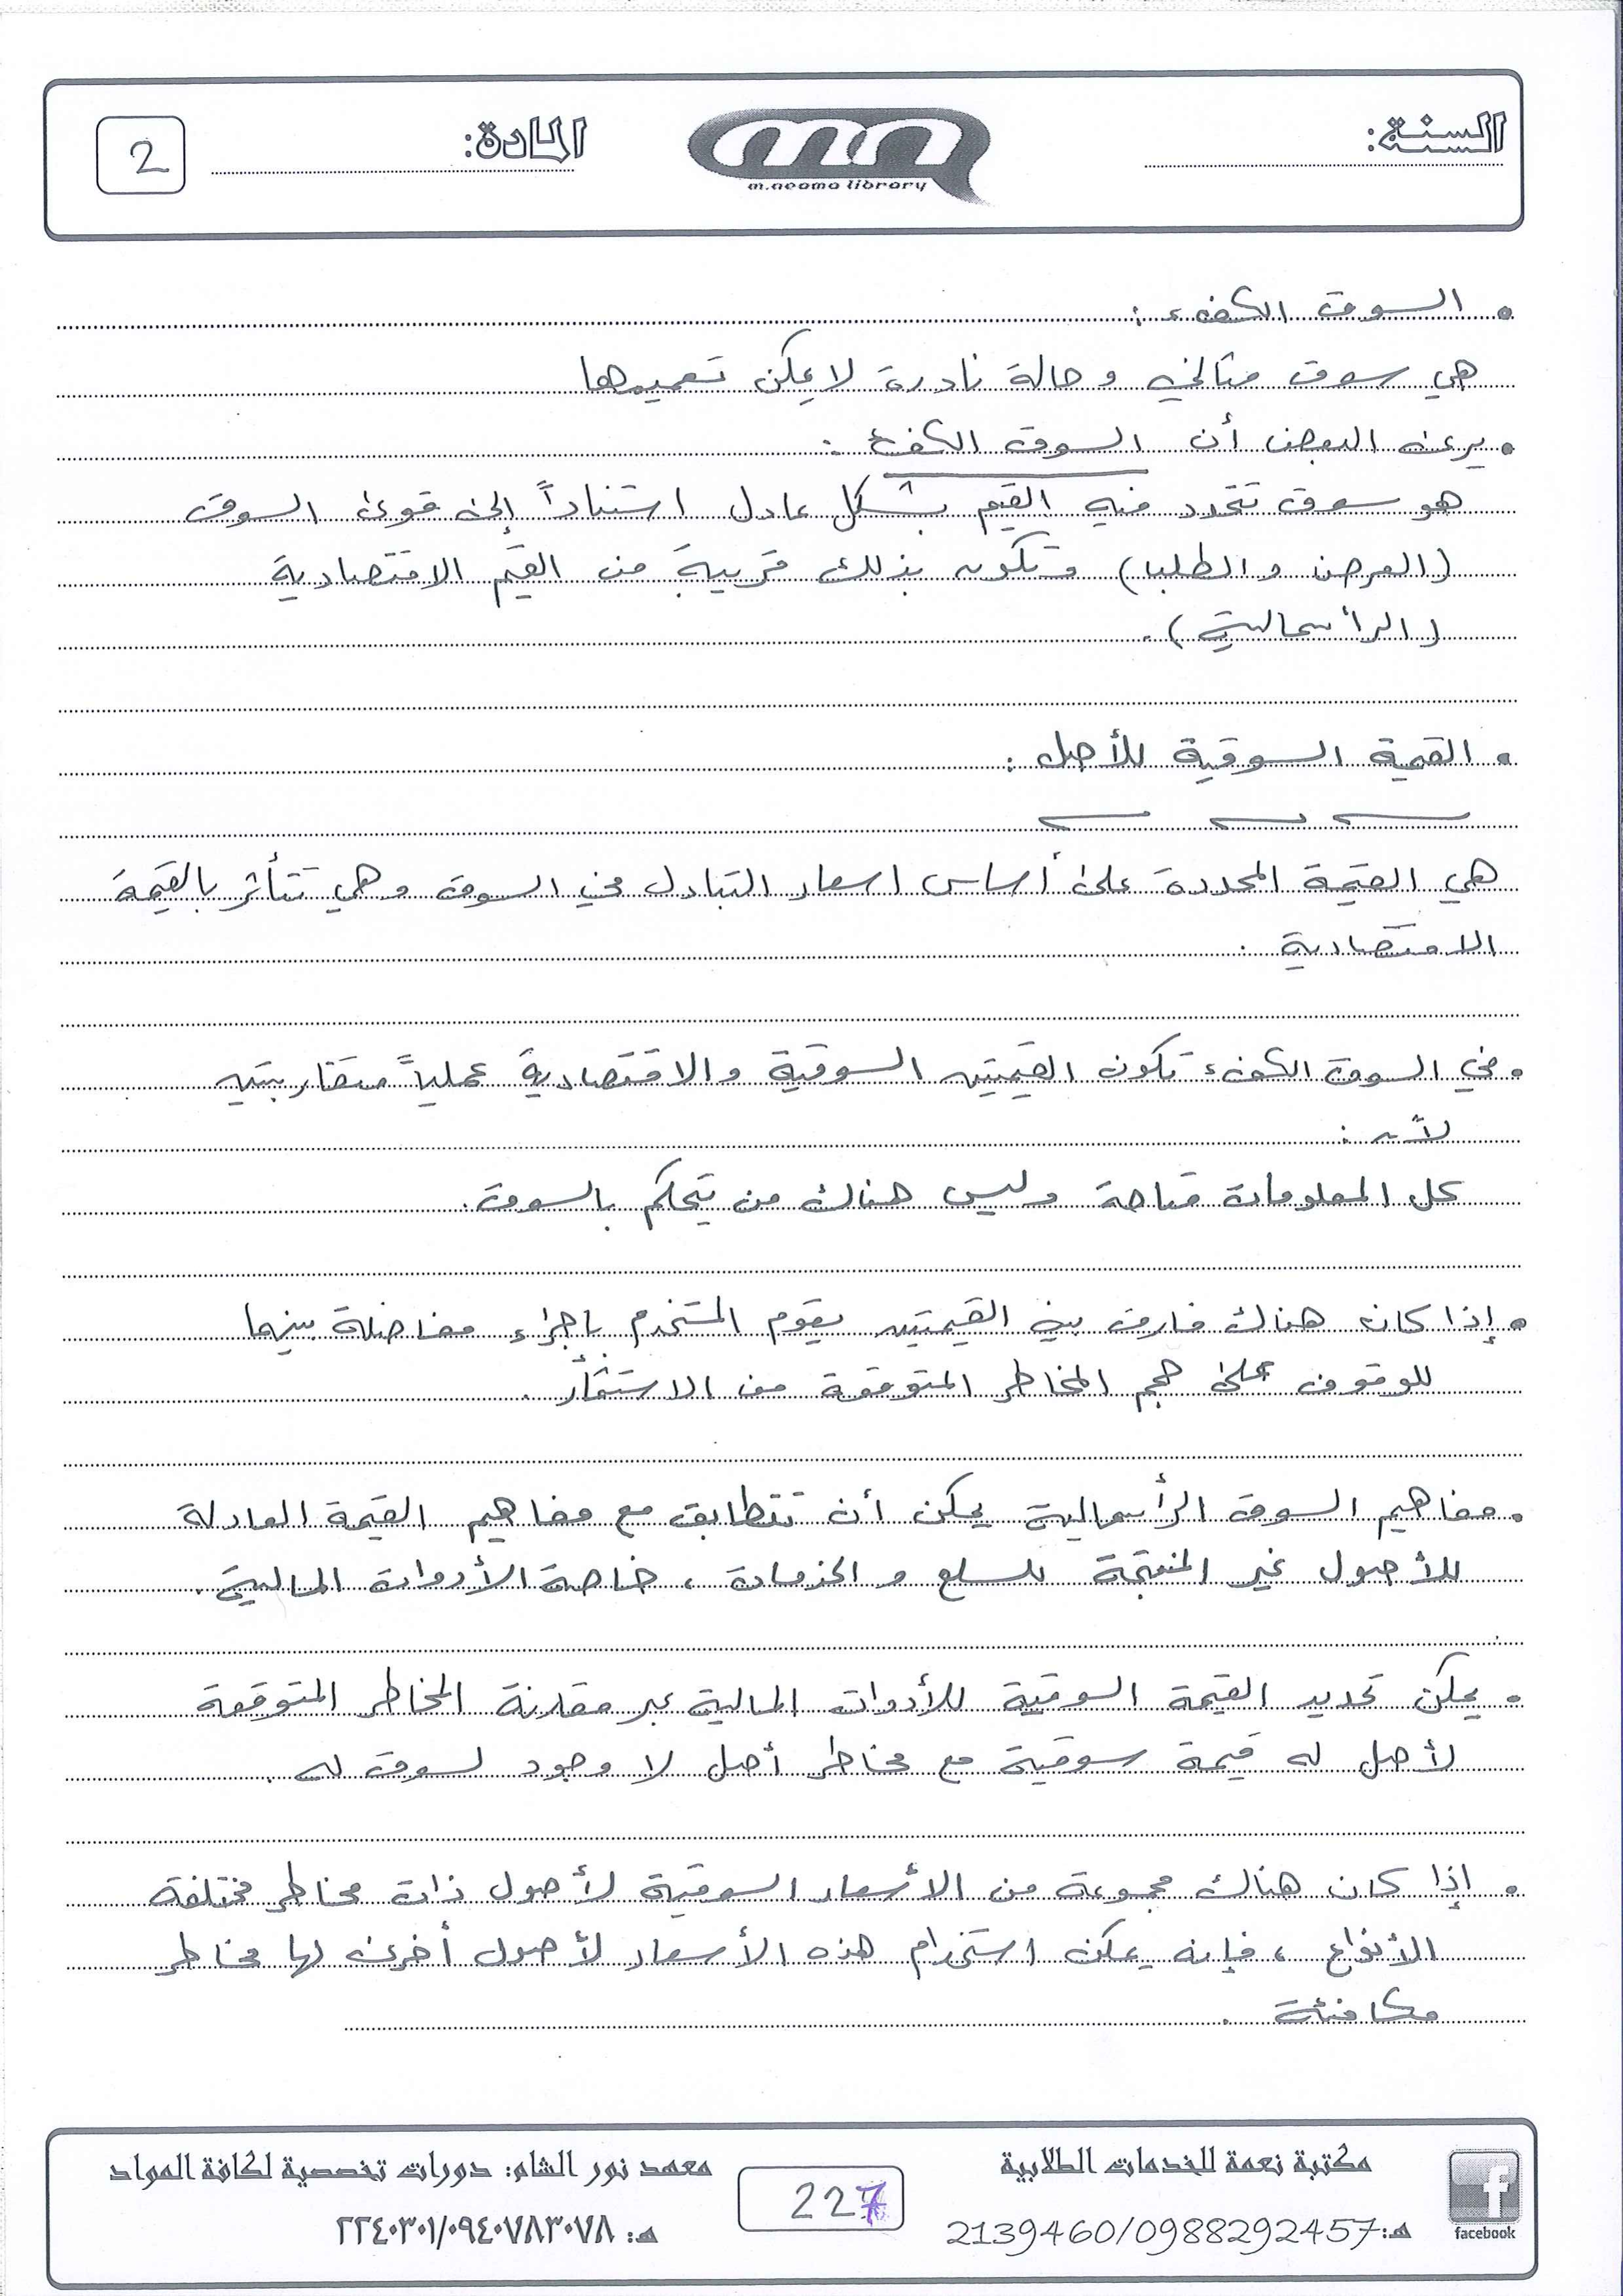 السنة:
m.neama library
المادة:
2
• السوق الكفء :
هي سوق مثالي و حالة نادرة لا يمكن تعميمها
• يرى البعض أن السوق الكفء :
هو سوق تتحدد فيه القيم بشكل عادل استناداً إلى قوى السوق
(العرض و الطلب) و تكون بذلك قريبة من القيم الاقتصادية
(الرأسمالية) .
• القيمة السوقية للأصل :
هي القيمة المحددة على أساس اسعار التبادل في السوق و هي تتأثر بالقيمة
الاقتصادية .
• في السوق الكفء تكون القيمتين السوقية و الاقتصادية عملياً متقاربتين
لأن :
كل المعلومات متاحة وليس هناك من يتحكم بالسوق.
• إذا كان هناك فارق بين القيمتين يقوم المستخدم بإجراء مفاضلة بينهما
للوقوف على حجم المخاطر المتوقعة من الاستثمار .
• مفاهيم السوق الرأسمالية يمكن أن تتطابق مع مفاهيم القيمة العادلة
للأصول غير المنتجة للسلع و الخدمات ، خاصة الأدوات المالية .
• يمكن تحديد القيمة السوقية للأدوات المالية عبر مقارنة المخاطر المتوقعة
لأصل له قيمة سوقية مع مخاطر أصل لا وجود لسوق له .
• إذا كان هناك مجموعة من الأسعار السوقية لأصول ذات مخاطر مختلفة
الأنواع ، فإنه يمكن استخدام هذه الأسعار لأصول أخرى لها مخاطر
مكافئة .
مكتبة نعمة للخدمات الطلابية
هـ: 2139460/0988292457
facebook
227
معهد نور الشام: دورات تخصصية لكافة المواد
هـ: ٢٢٤٠٣٠١/٠٩٤٠٧٨٣٠٧٨